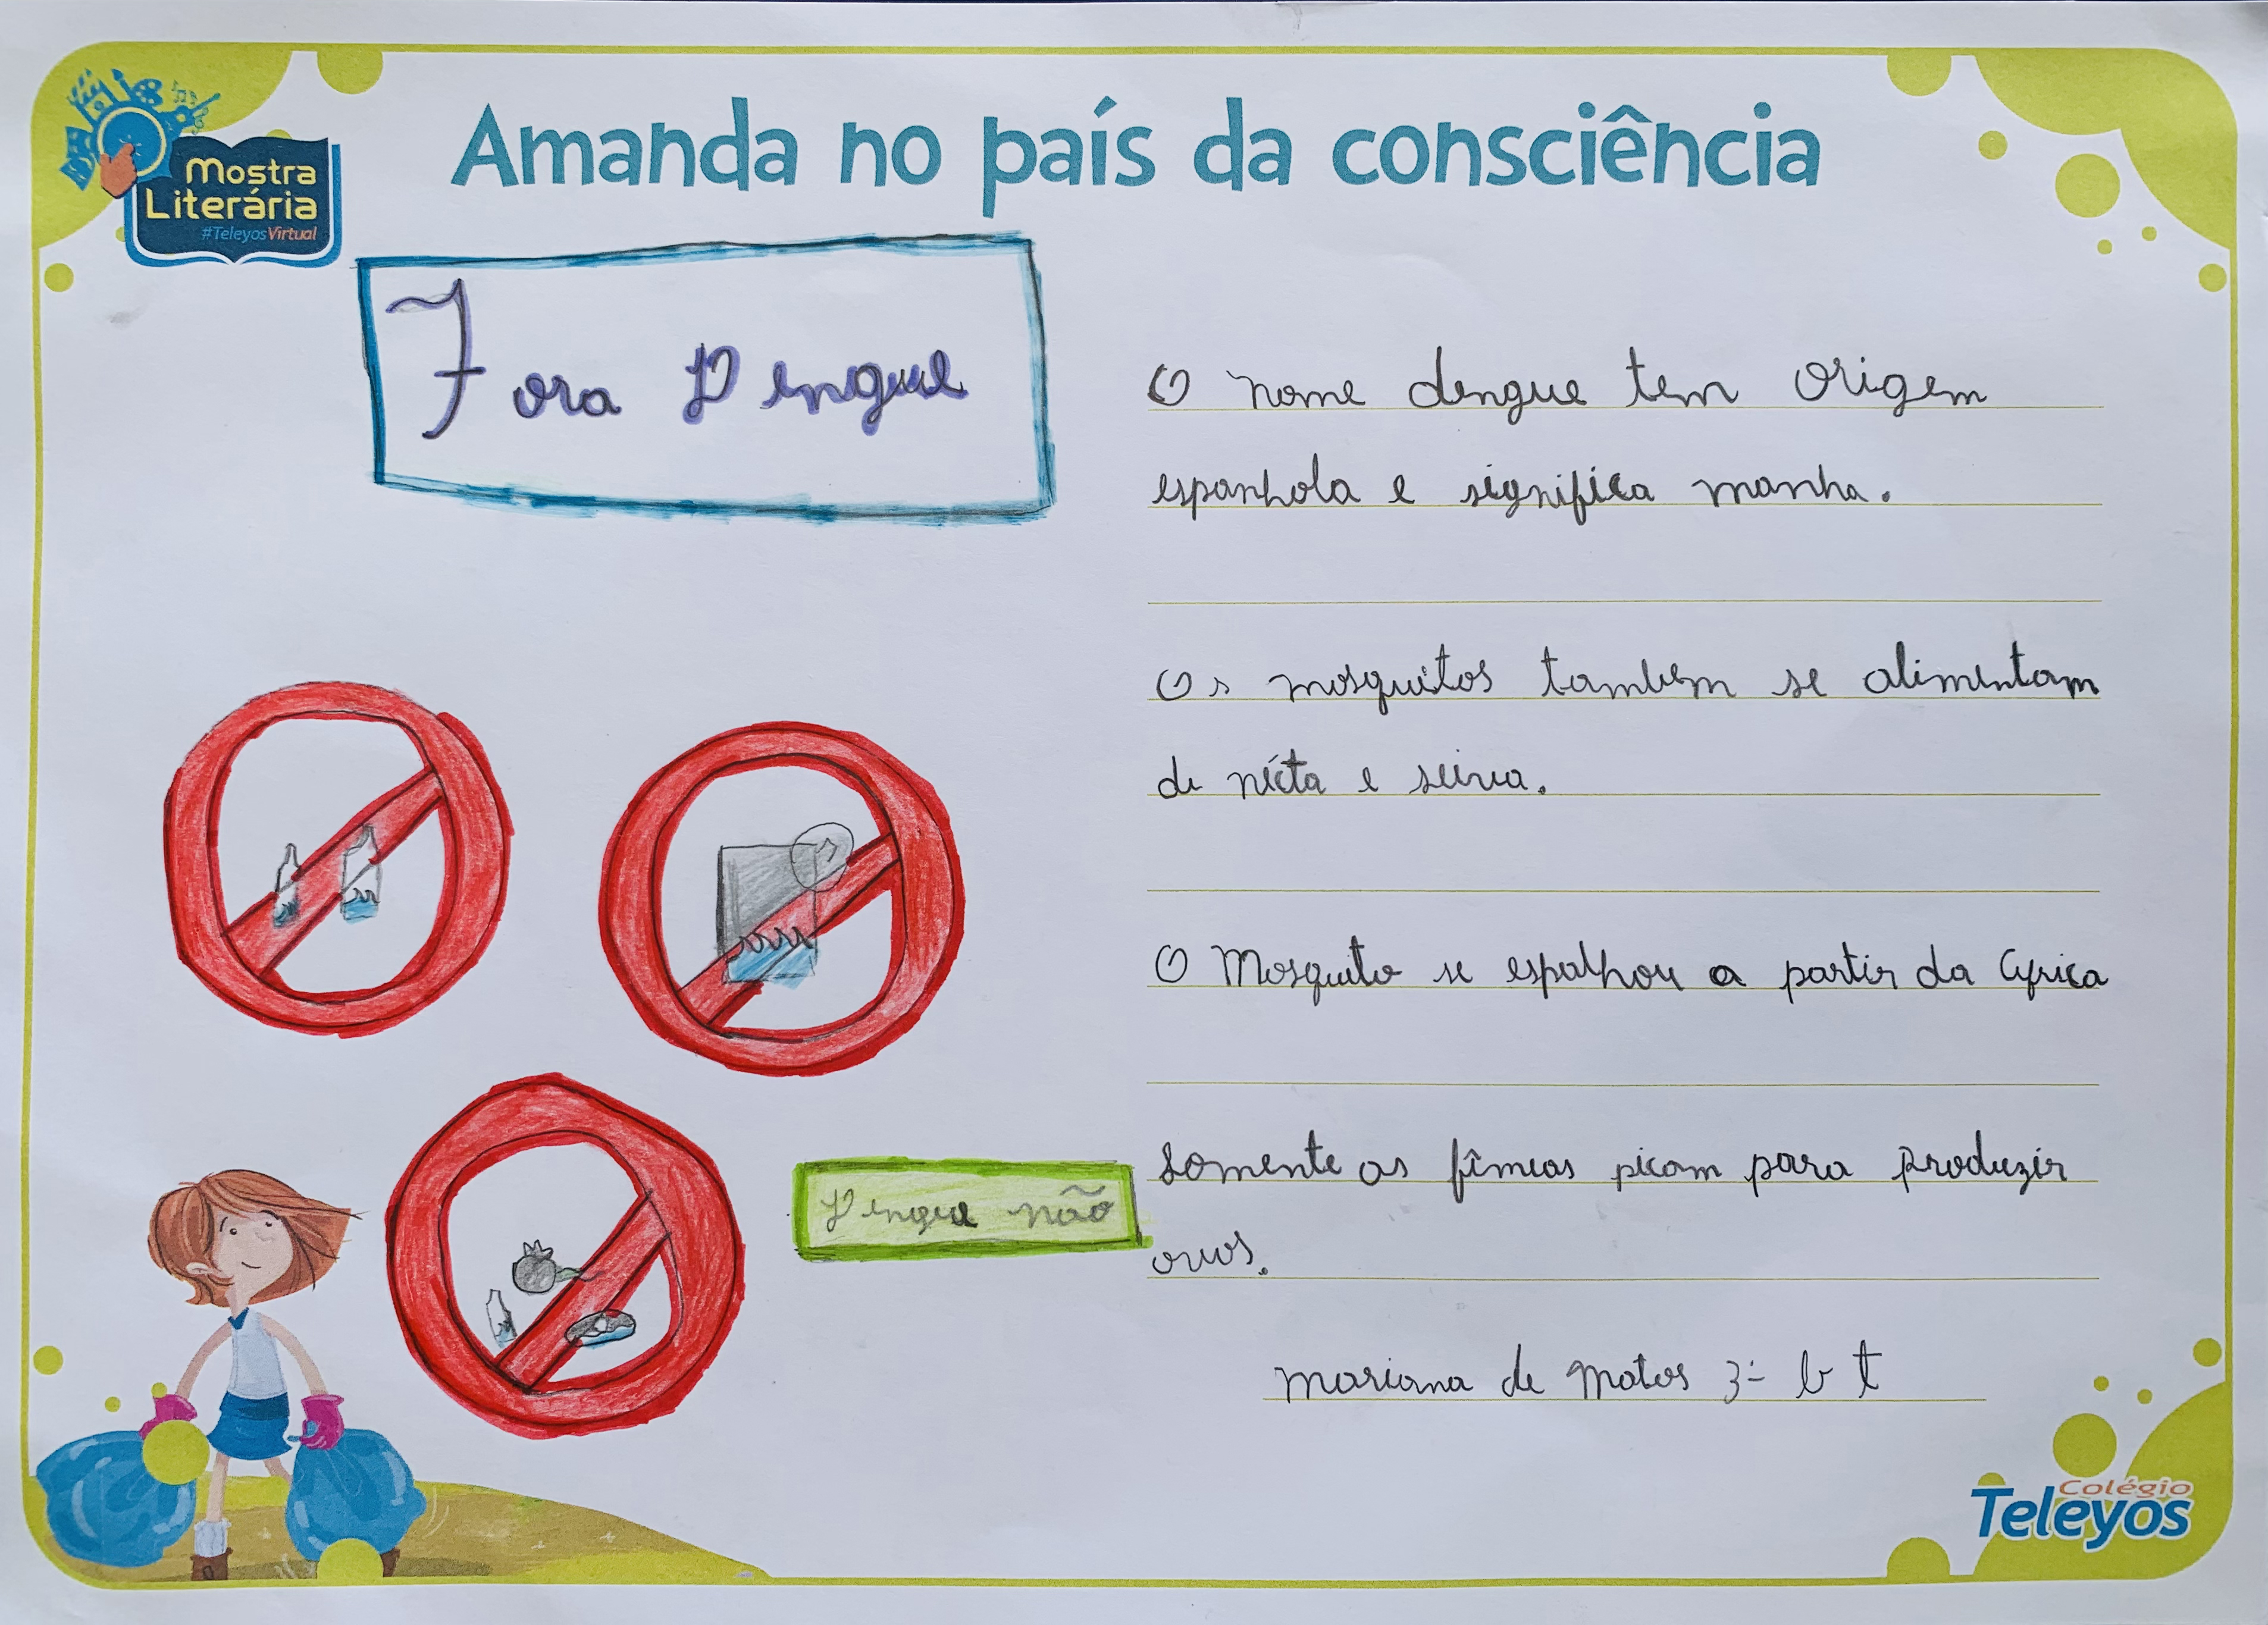 Mostra
Literária
#TeleyosVirtual
Amanda no país da consciência
Fora Dengue
O nome dengue tem origem
espanhola e significa manha.
Os mosquitos tambem se alimentam
de nécta e seiva.
O Mosquito se espalhou a partir da Africa
somente as fêmeas picam para produzir
ovos.
Dengue não
mariana de matos 3º b t
Colégio
Teleyos